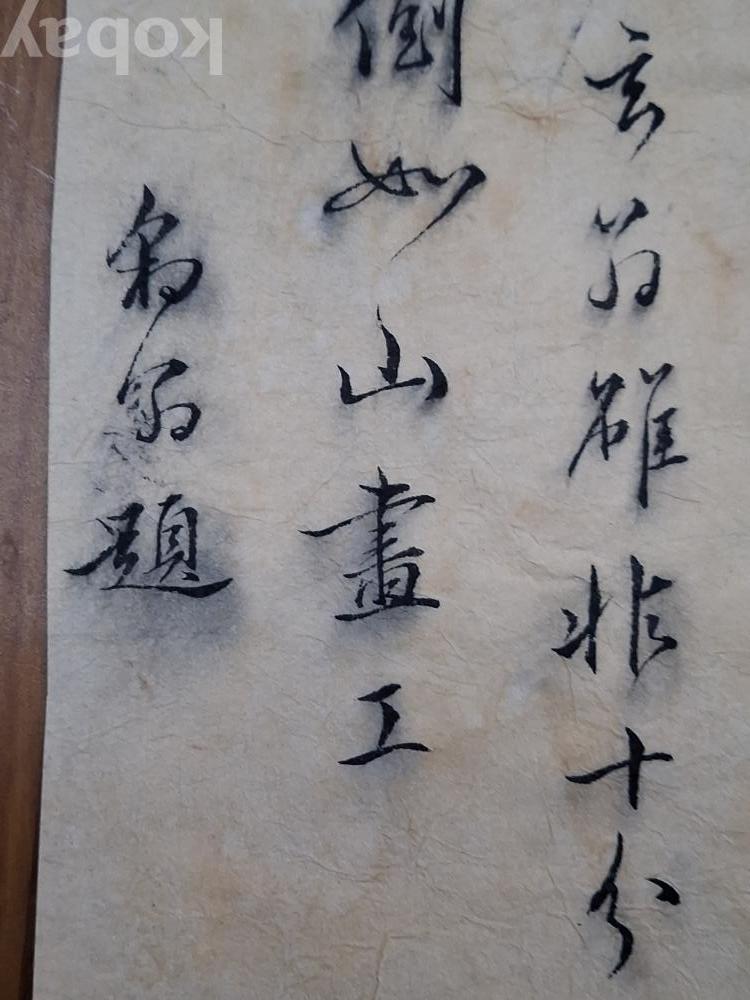 玄翁雖非十分
倒如山畫工
豹翁題
kobay